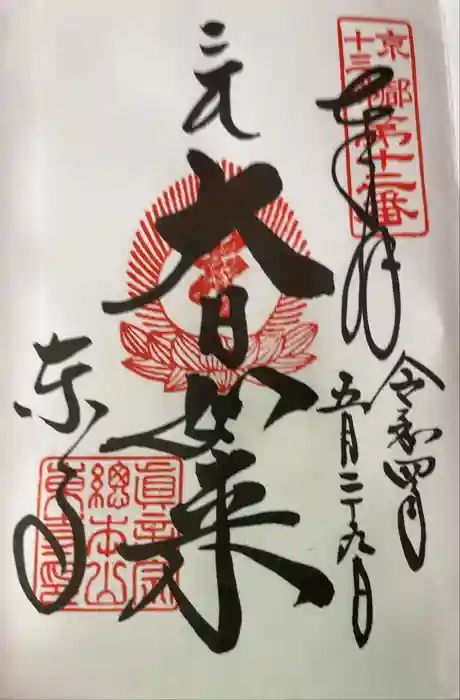 京都
十三佛
第十二番
奉拝
令和四年
五月二十九日
三元
大日如来
東寺
真言宗
總本山
東寺